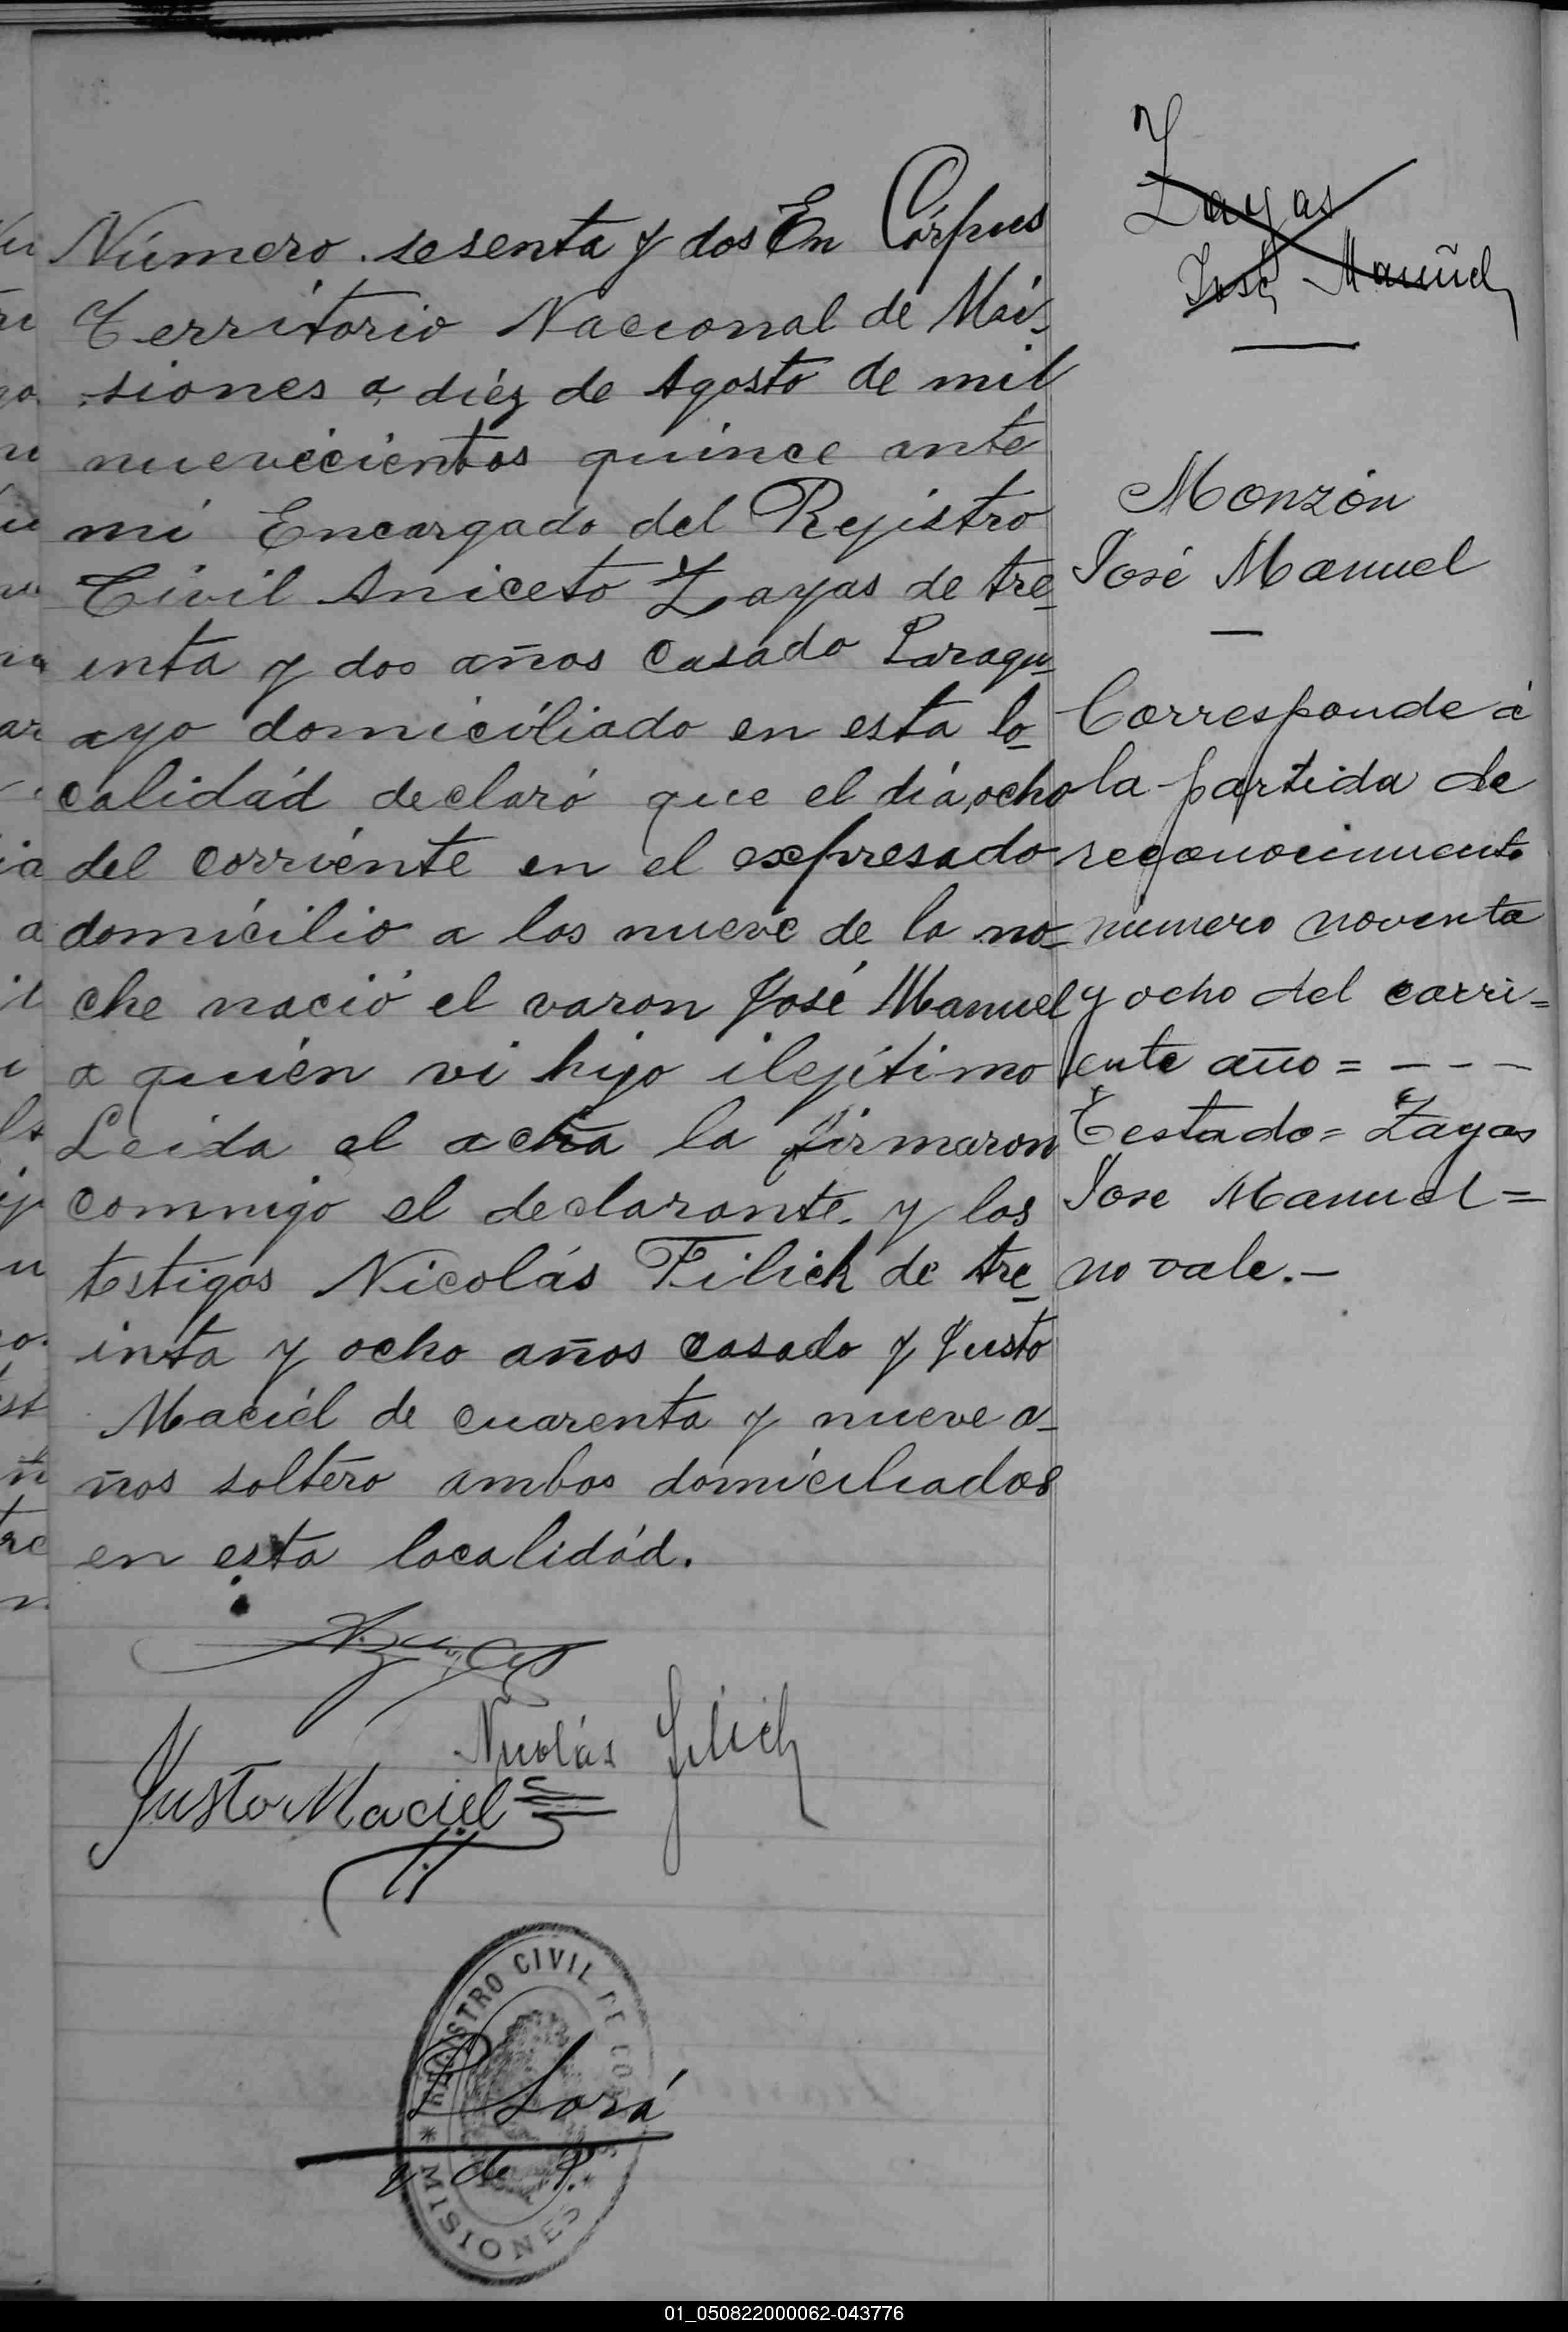 Número sesenta y dos En Córpus
Territorio Nacional de Mi-
siones a diéz de Agosto de mil
nuevecientos quince ante
mi Encargado del Rejistro
Civil Aniceto Zayas de tre_
inta y dos años casado Paragu_
ayo domiciliado en esta lo_
calidád declaró que el día ocho
del corriénte en el expresado
domicilio a las nueve de la no_
che nació el varon José Manuel
a quién vi hijo ilejítimo
Leida el acta la firmaron
commigo el declarante y los
testigos Nicolás Filich de tre_
inta y ocho años casado y Justo
Maciél de cuarenta y nueve a_
ños soltéro ambos domiciliados
en esta localidád.
Nicolás Filich
Justo Maciel
REGISTRO CIVIL DE CORPUS
* MISIONES *
P Lorá
J. de P.
Zayas
José Manuel
Monzón
José Manuel
Corresponde á
la partida de
reconocimiento
número noventa
y ocho del corri=
ente año = - - -
Testado = Zayas
Jose Manuel =
no vale.-
01_050822000062-043776